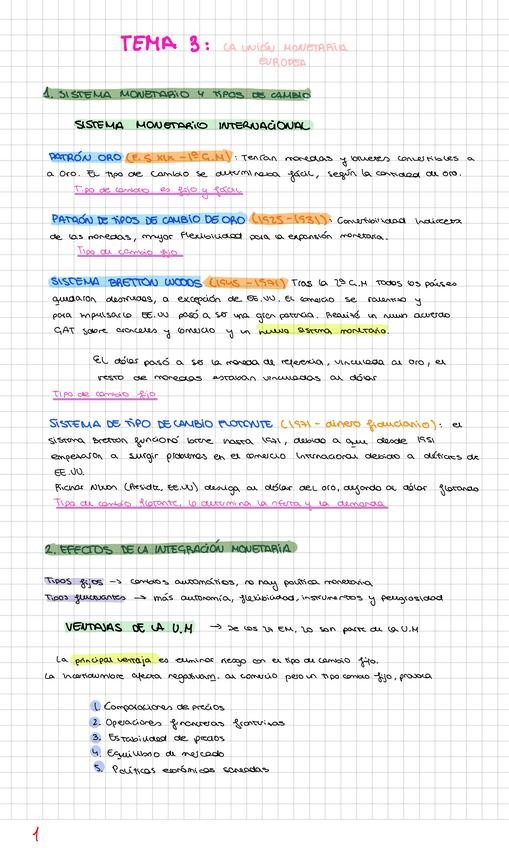 TEMA 3: LA UNIÓN MONETARIA
EUROPEA
1. SISTEMA MONETARIO Y TIPOS DE CAMBIO
SISTEMA MONETARIO INTERNACIONAL
PATRÓN ORO (F. S XIX - 1ª G.M): Tenían monedas y billetes convertibles a
a Oro. El tipo de cambio se determinaba fácil, según la cantidad de oro.
Tipo de cambio es fijo y fácil
PATRÓN DE TIPOS DE CAMBIO DE ORO (1925-1931): Convertibilidad indirecta
de las monedas, mayor flexibilidad para la expansión monetaria.
Tipo de cambio fijo
SISTEMA BRETTON WOODS (1945-1971) Tras la 2ª G.M todos los países
quedaron destruidos, a excepción de EE.UU. El comercio se ralentizó y
para impulsarlo EE.UU pasó a ser una gran potencia. Realizó un nuevo acuerdo
GAT sobre aranceles y comercio y un nuevo sistema monetario.
El dólar pasó a ser la moneda de referencia, vinculada al oro, el
resto de monedas estaban vinculadas al dólar
Tipo de cambio fijo
SISTEMA DE TIPO DE CAMBIO FLOTANTE (1971 - dinero fiduciario): el
sistema Bretton funcionó bien hasta 1971, debido a que desde 1951
empezaron a surgir problemas en el comercio internacional debido a déficits de
EE.UU.
Richar Nixon (Presidte, EE.UU) desliga al dólar del oro, dejando al dólar flotando
Tipo de cambio flotante, lo determina la oferta y la demanda
2. EFECTOS DE LA INTEGRACIÓN MONETARIA
Tipos fijos → cambios automáticos, no hay política monetaria
Tipos fluctuantes → más autonomía, flexibilidad, instrumentos y peligrosidad
VENTAJAS DE LA U.M → De los 27 EM, 20 son parte de la U.M
La principal ventaja es eliminar riesgo con el tipo de cambio fijo.
La incertidumbre afecta negativam. al comercio pero un tipo cambio fijo, provoca
1. Comparaciones de precios
2. Operaciones financieras fronterizas
3. Estabilidad de precios
4. Equilibrio de mercado
5. Políticas económicas saneadas
1